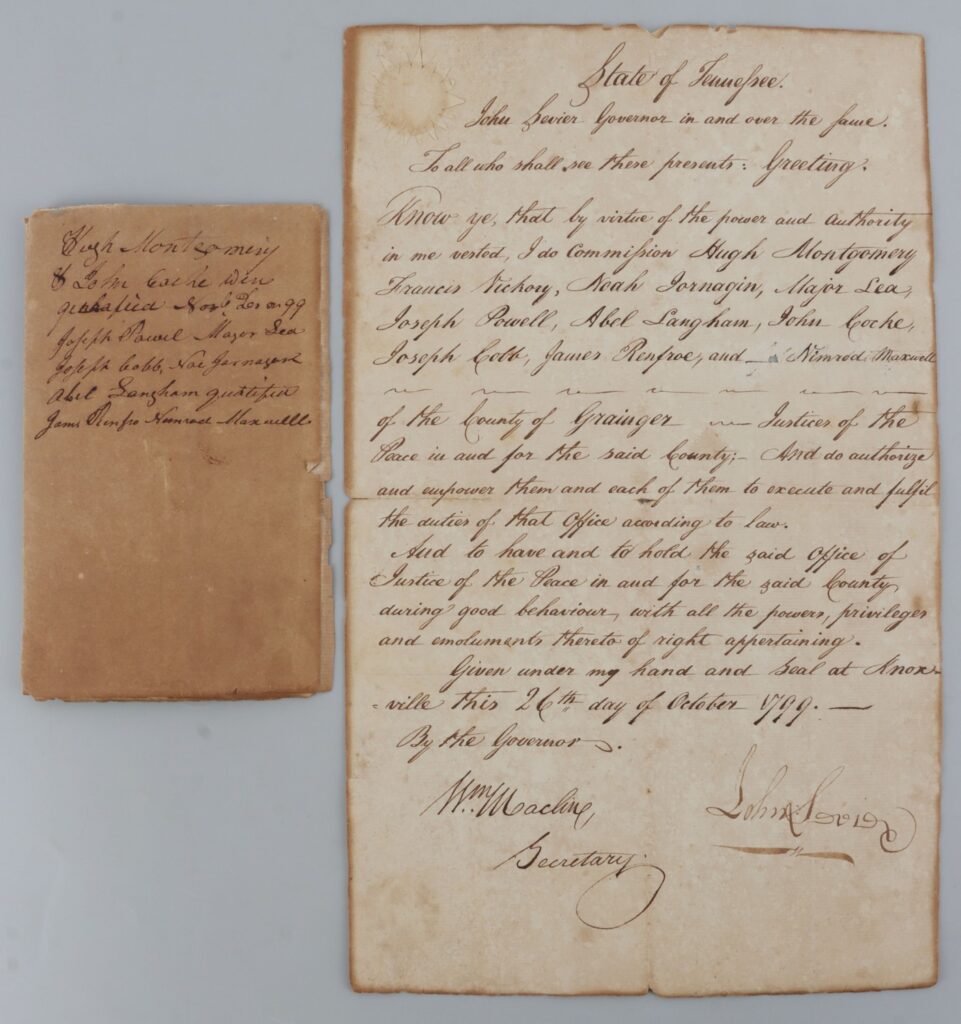 Hugh Montgomery
& John Cocke wer
qualified Novr Ter 99
Joseph Powel Major Lea
Joseph Cobb, Noe Jarnagan
Abel Langham qualified
James Renfro Nimrod Maxwell
State of Tennessee.
John Sevier Governor in and over the same.
To all who shall see these presents: Greeting.
Know ye, that by virtue of the power and authority
in me vested, I do Commission Hugh Montgomery
Francis Vickory, Noah Jornagin, Major Lea,
Joseph Powell, Abel Langham, John Cocke,
Joseph Cobb, James Renfroe, and — Nimrod Maxwell
of the County of Grainger — Justices of the
Peace in and for the said County;- And do authorize
and empower them and each of them to execute and fulfil
the duties of that office acording to law.
And to have and to hold the said office of
Justice of the Peace in and for the said County
during good behaviour, with all the powers, privileges
and emoluments thereto of right appertaining.
Given under my hand and seal at Knox-
-ville this 26th day of October 1799. —
By the Governor.
Wm Maclin,
John Sevier
Secretary.